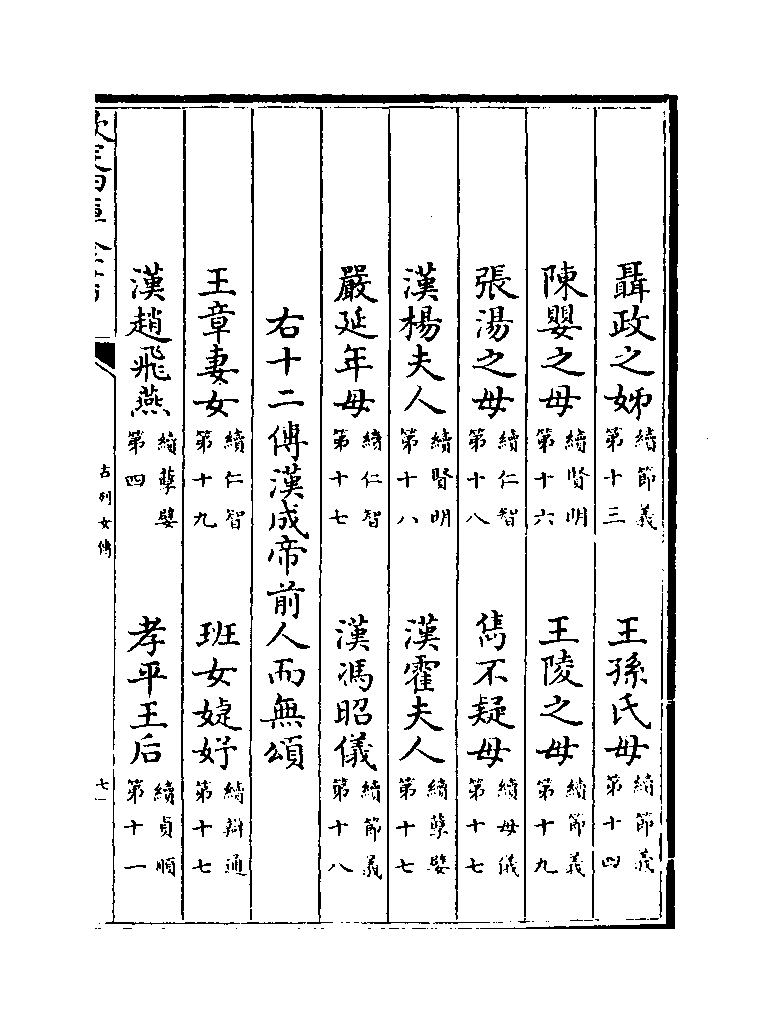 聶政之姊續節義第十三 王孫氏母續節義第十四
陳嬰之母續賢明第十六 王陵之母續節義第十九
張湯之母續仁智第十八 雋不疑母續母儀第十七
漢楊夫人續賢明第十八 漢霍夫人續孽嬖第十七
嚴延年母續仁智第十七 漢馮昭儀續節義第十八
右十二傳漢成帝前人而無頌
王章妻女續仁智第十九 班女婕妤續辯通第十七
漢趙飛燕續孽嬖第四 孝平王后續貞順第十一
古列女傳
七